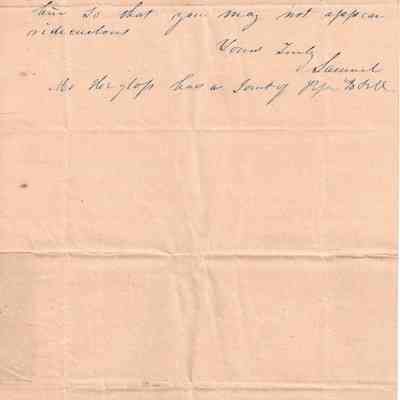 him so that you may not appear
rideculous
Yours Truly
Samuel
Mr has a of